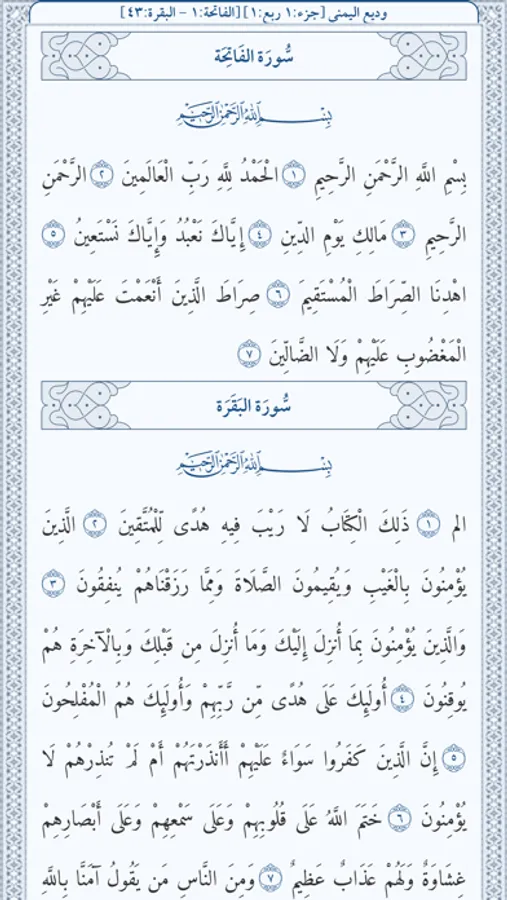 وديع اليمني [جزء:١ ربع:١] [الفاتحة:١ - البقرة:٤٣]
سُّورَة الفَاتِحَة
بِسْمِ اللَّهِ الرَّحْمَٰنِ الرَّحِيمِ
بِسْمِ اللَّهِ الرَّحْمَنِ الرَّحِيمِ ١ الْحَمْدُ لِلَّهِ رَبِّ الْعَالَمِينَ ٢ الرَّحْمَنِ
الرَّحِيمِ ٣ مَالِكِ يَوْمِ الدِّينِ ٤ إِيَّاكَ نَعْبُدُ وَإِيَّاكَ نَسْتَعِينُ ٥
اهْدِنَا الصِّرَاطَ الْمُسْتَقِيمَ ٦ صِرَاطَ الَّذِينَ أَنْعَمْتَ عَلَيْهِمْ غَيْرِ
الْمَغْضُوبِ عَلَيْهِمْ وَلَا الضَّالِّينَ ٧
سُّورَة البَقَرَة
بِسْمِ اللَّهِ الرَّحْمَٰنِ الرَّحِيمِ
الم ١ ذَلِكَ الْكِتَابُ لَا رَيْبَ فِيهِ هُدًى لِّلْمُتَّقِينَ ٢ الَّذِينَ
يُؤْمِنُونَ بِالْغَيْبِ وَيُقِيمُونَ الصَّلَاةَ وَمِمَّا رَزَقْنَاهُمْ يُنفِقُونَ ٣
وَالَّذِينَ يُؤْمِنُونَ بِمَا أُنزِلَ إِلَيْكَ وَمَا أُنزِلَ مِن قَبْلِكَ وَبِالْآخِرَةِ هُمْ
يُوقِنُونَ ٤ أُولَئِكَ عَلَى هُدًى مِّن رَّبِّهِمْ وَأُولَئِكَ هُمُ الْمُفْلِحُونَ
٥ إِنَّ الَّذِينَ كَفَرُوا سَوَاءٌ عَلَيْهِمْ أَأَنذَرْتَهُمْ أَمْ لَمْ تُنذِرْهُمْ لَا
يُؤْمِنُونَ ٦ خَتَمَ اللَّهُ عَلَى قُلُوبِهِمْ وَعَلَى سَمْعِهِمْ وَعَلَى أَبْصَارِهِمْ
غِشَاوَةٌ وَلَهُمْ عَذَابٌ عَظِيمٌ ٧ وَمِنَ النَّاسِ مَن يَقُولُ آمَنَّا بِاللَّهِ